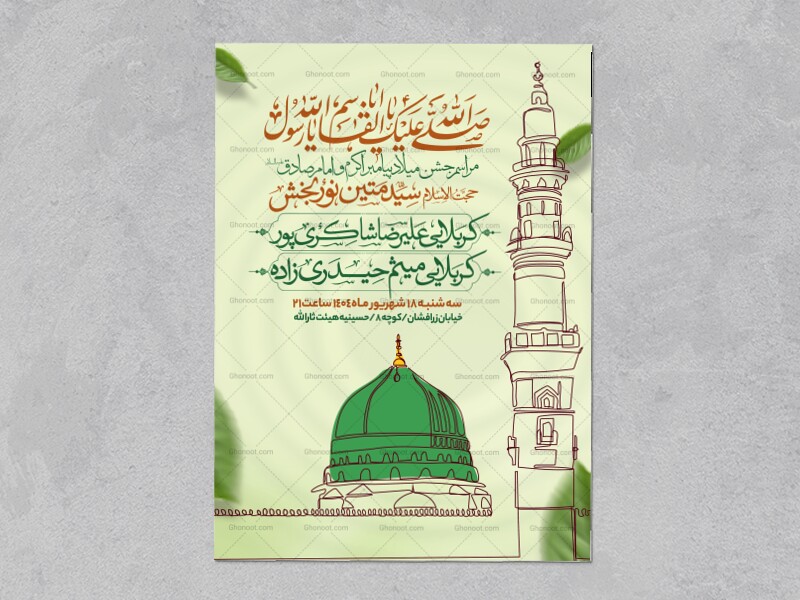 صلی الله علیک یا ابالقاسم یا رسول الله
مراسم جشن میلاد پیامبر اکرم و امام صادق
حجت الاسلام سید متین نوربخش
کربلایی علیرضا شاکری پور
کربلایی میثم حیدری زاده
سه شنبه ۱۸ شهریور ماه ۱۴۰۴ ساعت ۲۱
خیابان زرافشان / کوچه ۸ / حسینیه هیئت ثارالله
Ghonoot.com